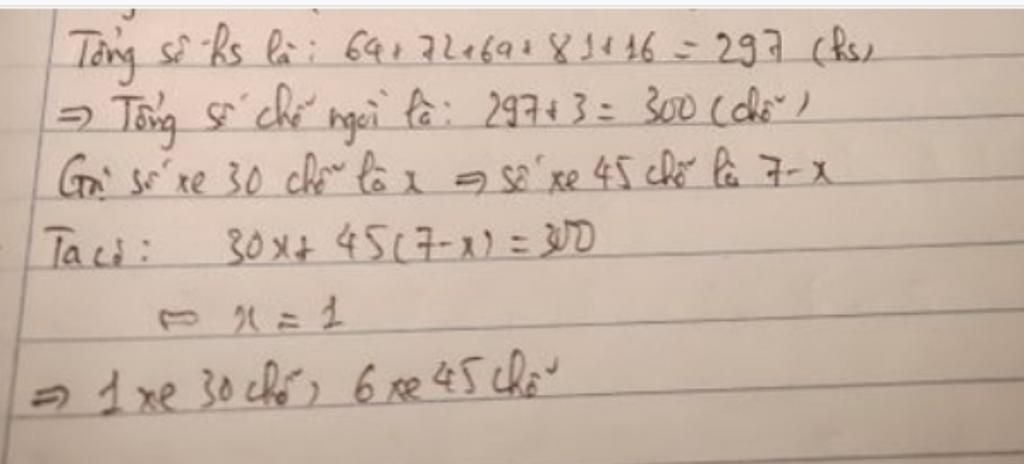 Tổng số hs là: 64+72+69+81+16 = 297 (hs)
=> Tổng số chỗ ngồi là: 297+3 = 300 (chỗ)
Gọi số xe 30 chỗ là x => số xe 45 chỗ là 7-x
Ta có: 30x+ 45(7-x) = 300
<=> x = 1
=> 1 xe 30 chỗ, 6 xe 45 chỗ